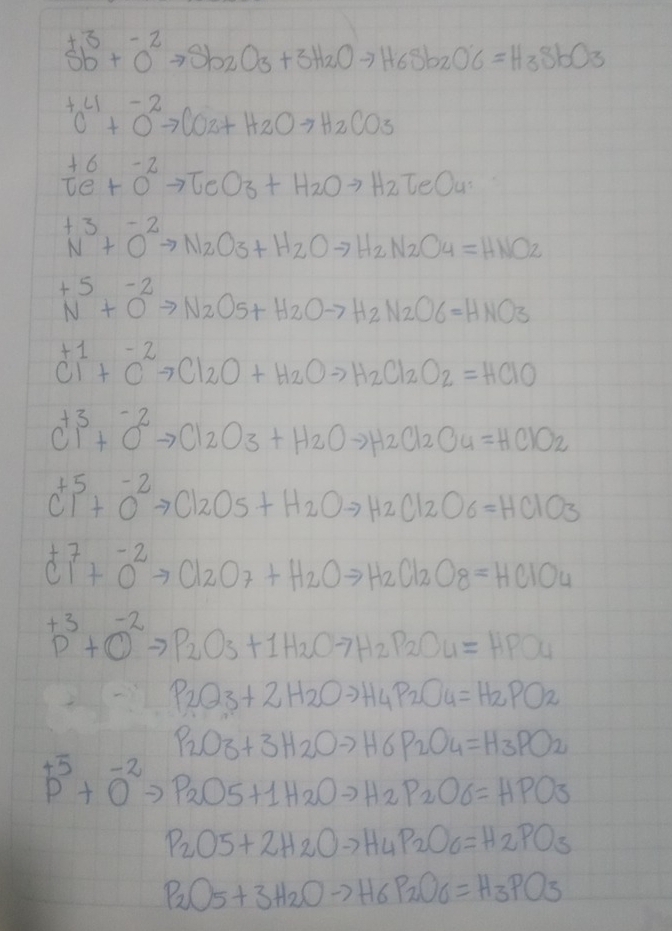 +3 -2
Sb + O → Sb2O3 + 3H2O → H6Sb2O6 = H3SbO3
+4 -2
C + O → CO2 + H2O → H2CO3
+6 -2
Te + O → TeO3 + H2O → H2TeO4
+3 -2
N + O → N2O3 + H2O → H2N2O4 = HNO2
+5 -2
N + O → N2O5 + H2O → H2N2O6 = HNO3
+1 -2
Cl + O → Cl2O + H2O → H2Cl2O2 = HClO
+3 -2
Cl + O → Cl2O3 + H2O → H2Cl2O4 = HClO2
+5 -2
Cl + O → Cl2O5 + H2O → H2Cl2O6 = HClO3
+7 -2
Cl + O → Cl2O7 + H2O → H2Cl2O8 = HClO4
+3 -2
P + O → P2O3 + 1H2O → H2P2O4 = HPO4
P2O3 + 2H2O → H4P2O4 = H2PO2
P2O3 + 3H2O → H6P2O4 = H3PO2
+5 -2
P + O → P2O5 + 1H2O → H2P2O6 = HPO3
P2O5 + 2H2O → H4P2O6 = H2PO3
P2O5 + 3H2O → H6P2O6 = H3PO3